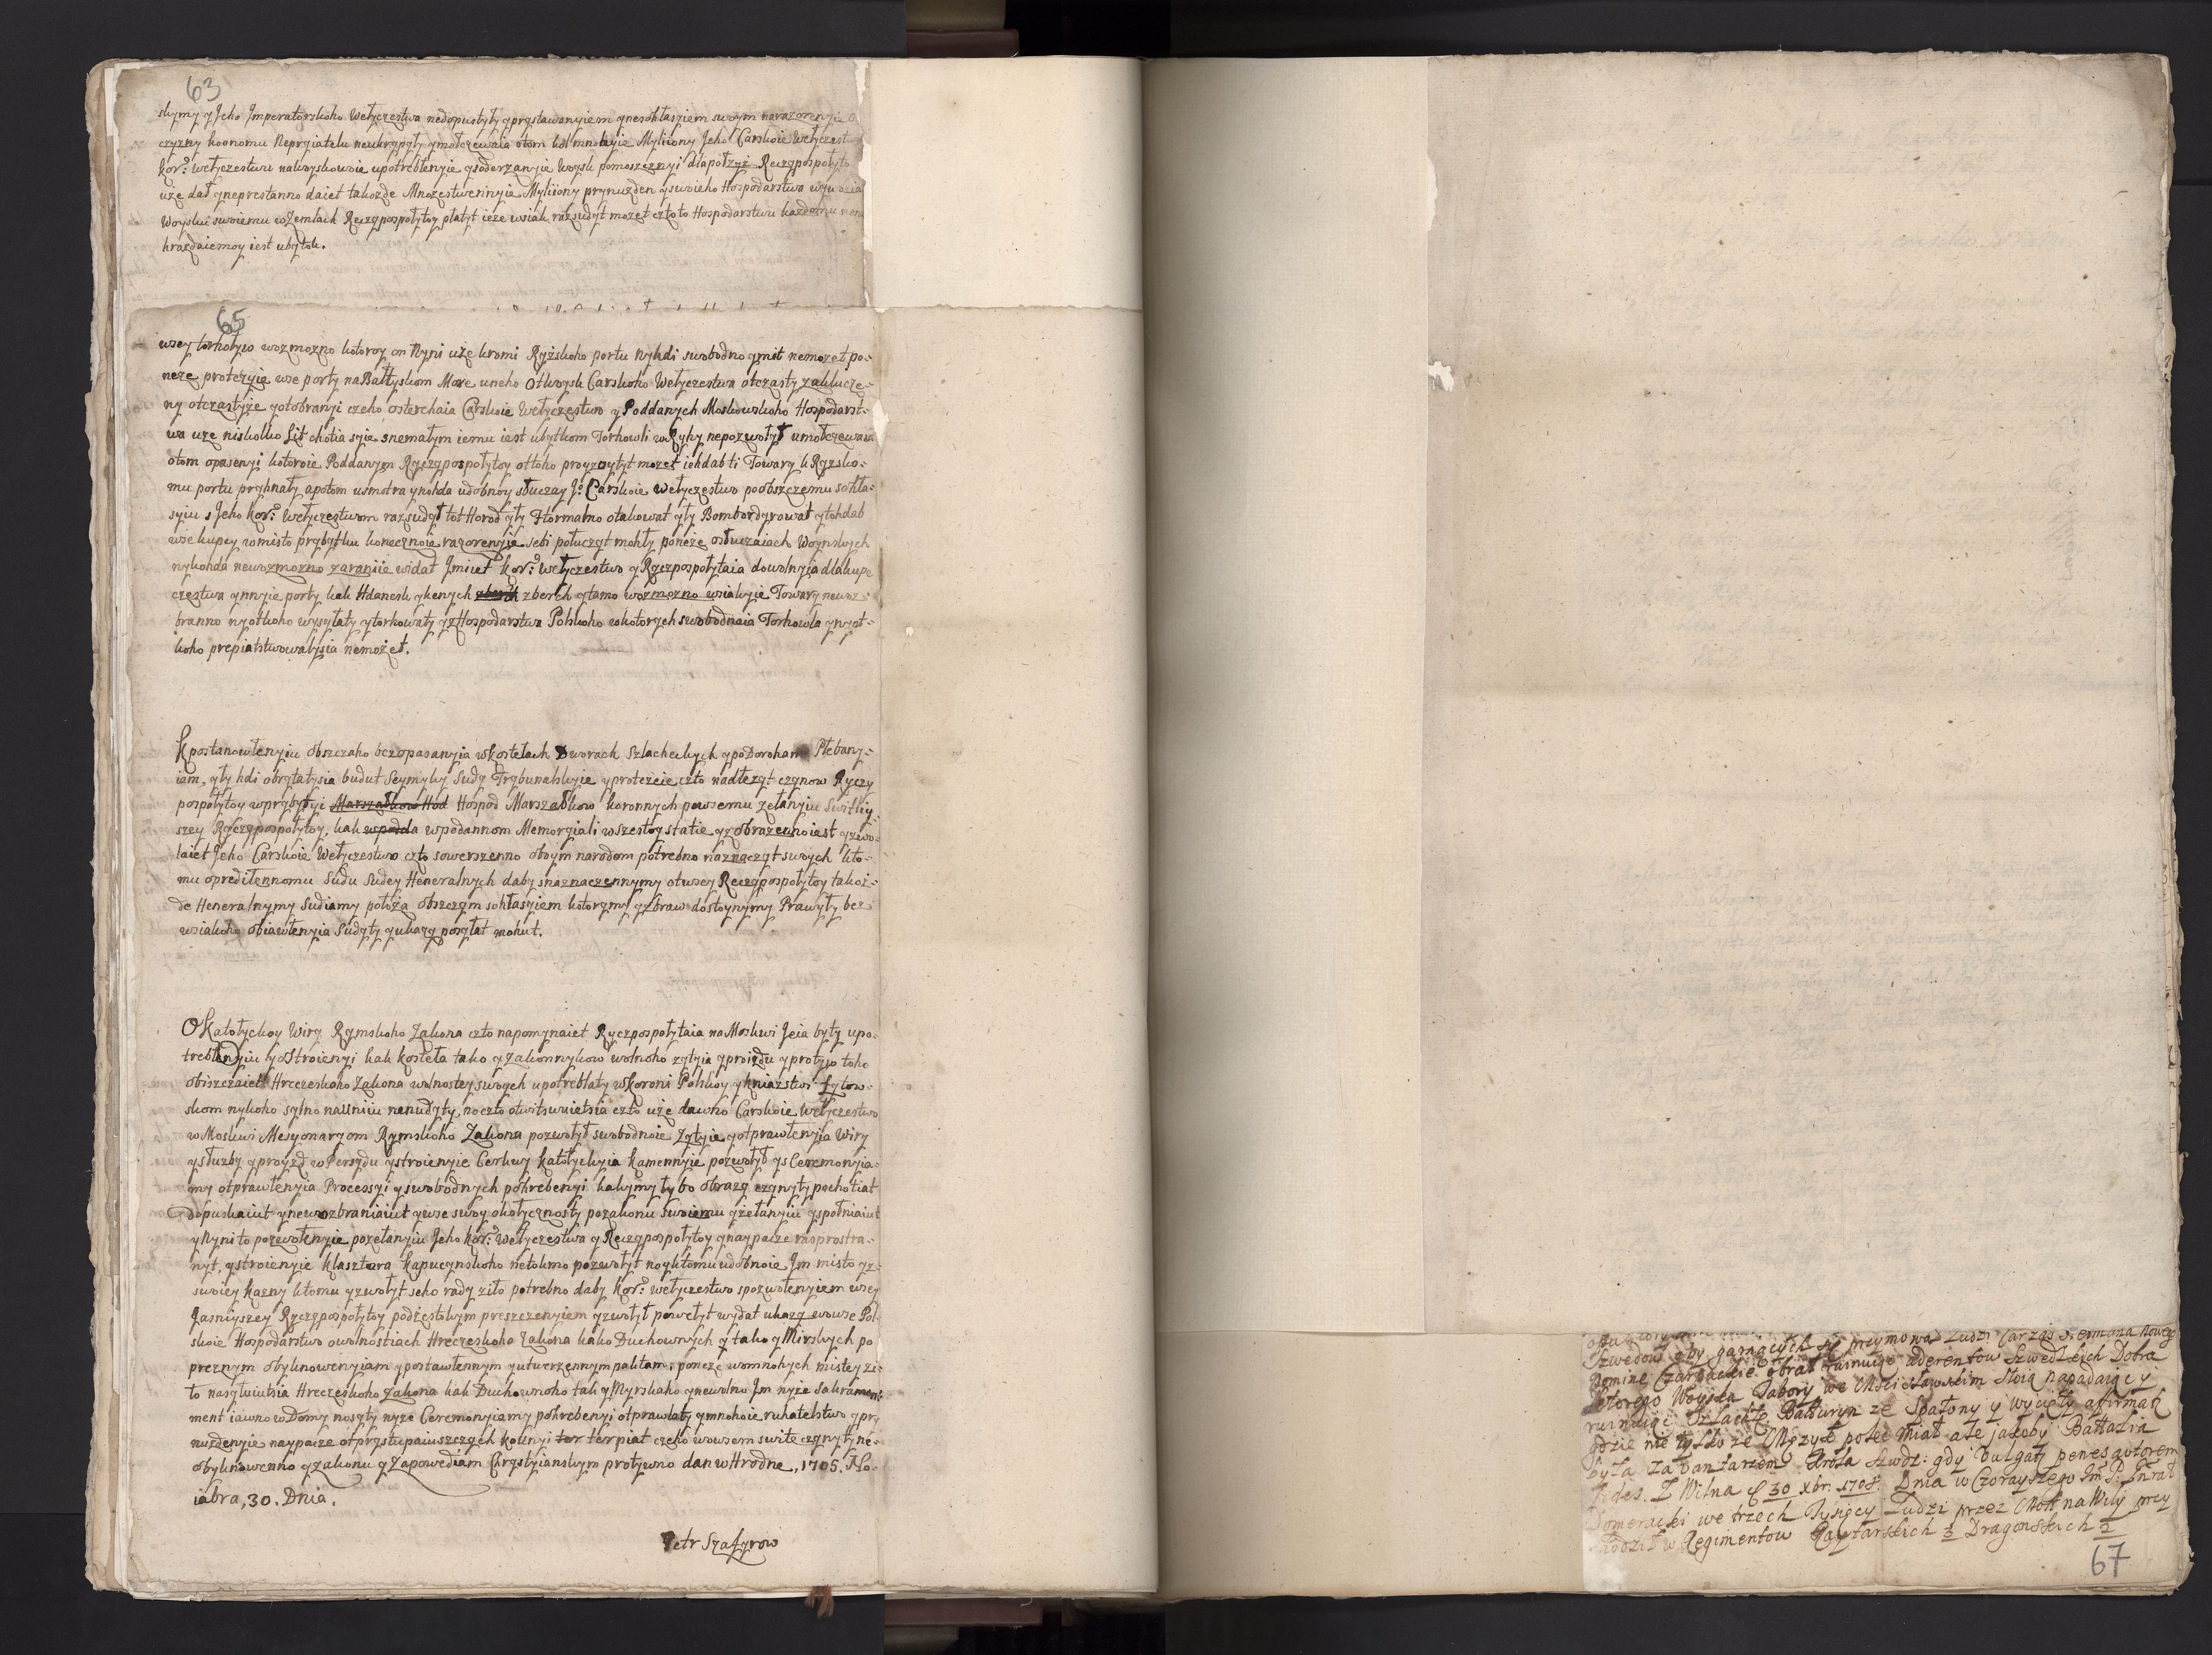 63
skymy y Jeho Jmperatorskoho Wełyczestwa nedopustyty y prystawanyiem y nesohłasyiem swoim narazorenyie
czyzny koonomu Nepryiatelu neukrypyty y mołczewaia otom koł mnohyie Myliiony Jeho Carskoie Wełyczestwo
kor: wełyczestwu na woyskowoie upotreblenyie y soderzanyie woysk pomoszcznyi dla polzyi Reczypospołytoy
uże dał y neprestanno daiet takożde Mnozestwennyie Myliiony prynużden y swoieho Hospodarstwa wywozia
Woysku swoiemu w Zemlach Reczypospołytoy płatyt ieże wsiak razsudyt możet czto to Hospodarstwu każdomu
krażdaiemoy iest ubytok.
65
wsey torhowłeo wozmozno kotoroy on Nyni uże kromi Ryżskoho portu nyhdi swobodno ymit nemożet po=
neże protczyie wse porty na Bałtyskom More uneho ot woysk Carskoho Wełyczestwa otczasty zakłucze=
ny otczastyże y otobranyi czeho osterehaia Carskoie Wełyczestwo y Poddanych Moskowskoho Hospodarst=
wa uże niskolko Lit chotia syie snemałym iemu iest ubytkom Torhowli w Ryhy nepozwołył umołczewaia
otom opasenyi kotoroie Poddanym Ryczypospołytoy ottoho proyzoytyt możet iehdabti Towary k Ryzsko=
mu portu pryhnały apotom usmotra ynohda udobnoy słuczay J: Carskoie Wełyczestwo poobszczemu sohła=
syiu s Jeho kor: Wełyczestwom razsudył tot Horod yły Fformalno atakowat yły Bombordyrowat y tohdab
wse kupcy womisto prybytku konecznoie razorenyie sebi połuczyt mohły poneże osłuczaiach Woynskych
nykohda newozmozno zaraniie widat Jmieł kor: wełyczestwo y Ryczpospołytaia dowolnyia dla kupe
czestwa ynnyie porty kak Hdanesk y kenych zberh y tamo wozmozno wsiakyie Towary newoz=
branno ny otkoho wysyłaty y torhowaty yz Hospodarstwa Polskoho wkotorych swobodnaia Torhowla ny ot=
koho prepiatstwowatysia nemożet.
K postanowłenyiu obszczaho bezopasanyia w kostełach Dworach Szlacheckych y po Doroham Płebany=
iam, yły hdi obrytatysia budut Seymyky Sudy Trybunalskyie y protczeie czto nadłeżyt czynow Ryczy
pospołytoy w prybytyi Marszałkow Hod Hospod Marszałkow koronnych powsemu żełanyiu Switłiy=
szey Ryczypospołytoy, kak wspodda wpodannom Memoryiali wszestoy statie yzobrażenno iest yzwo=
łaiet Jeho Carskoie Wełyczestwo czto sowerszenno oboym narodom potrebno naznaczyt swoych kto=
mu opredilennomu Sudu Sudey Heneralnych daby snaznaczennymy otwsey Reczypospołytoy takoż=
de Heneralnymy Sudiamy położa obszczym sohłasyiem kotorymy yzbraw dostoynymy Prawyty bez
wsiakoho obiawłenyia Sudyty y ukazy posyłat mohut.
O Katołyckoy Wiry Rymskoho Zakona czto napomynaiet Ryczpospołytaia na Moskwi Jeia byty upo=
trebłenyiu ły ostroienyi kak kosteła tako y zakonnykow wolnoho żytyia y proizdu y protyw toho
obiszczaiet Hreczeskoho Zakona wolnostey swoych upotrebłaty w koroni Polskoy y kniazstwi Łytow=
skom nykoho sylno na Uniiu nenudyty, no czto otwitstwuietsia czto uże dawno Carskoie Wełyczestwo
w Moskwi Mesyonaryom Rymskoho Zakona pozwołył swobodnoie Żytyie y otprawłenyia Wiry
y słuzby y proyzd w Persydu y stroienyie Cerkwy katołyckyia kamennyie pozwołył y s Ceremonyia=
my otprawłenyia Processyi y swobodnych pohrebenyi kakymyłybo obrazy czynyty pochotiat
dopuskaiut y newozbraniaiut y wse swoy okołycznosty po zakonu swoiemu y żełanyiu yspołniaiut
y Nyni to pozwołenyie po żełanyiu Jeho kor: Wełyczestwa y Reczypospołytoy y naypacze rasprostra=
nyt, y stroienyie klasztora kapucynskoho netokmo pozwołyt no y ktomu udobnoie Jm misto yz
swoiey kazny ktomu yzwołyt seho rady ziło potrebno daby kor: wełyczestwo spozwołenyiem wsey
Jasniyszey Ryczypospołytoy podżestokym preszczenyiem yzwołył powełyt wydat ukazy wowse Pol=
skoie Hospodarstwo owolnostiach Hreczeskoho Zakona kako Duchownych y tako y Mirskych po
preżnym obyknowenyiam y postawłennym y utwerżennym paktam, poneże womnohych mistey zi=
ło nasyłuiutsia Hreczeskoho Zakona kak Duchownoho tak y Myrskaho y newolno Jm nyże Sakrament
ment iawno w Domy nosyty nyże Ceremonyiamy pohrebenyi otprawlaty y mnohoie ruhatelstwo y pry
nużdenyie naypacze otprystupaiuszczych koUnyi ter terpiat czeho wowsem swite czynyty ne=
obyknowenno y zakonu y Zapowediam Chrystyianskym protywno dan w Hrodne, 1705. No=
iabra, 30. Dnia.
Petr Szafyrow
Szwedow aby garnących się przymował Ludzi Car zas Hetmana nowego
nomine Czarnackie obrał rasnuiąc aderentow Szwedzkich Dobra
ktorego Woyska Tabory we Mscisławskim stoią napadaiąc y
ruinuiąc Szlachtę. Batturyn ze Spalony y wycięty afirmat
gdzie nie tylko ze Męzyk poledz miał ale jakoby Battalia
była za bantarzem Krola Szwdz: gdy Vulgat penes autorem
fides. Z Wilna d 30 xbr. 1708. Dnia wczorayszego Jm P. Gnrał
Pomeracki we trzech Tysięcy Ludzi przez Most na Wilij prze
chodził w Regimentow Raytarskich 3 Dragonskich 2
67